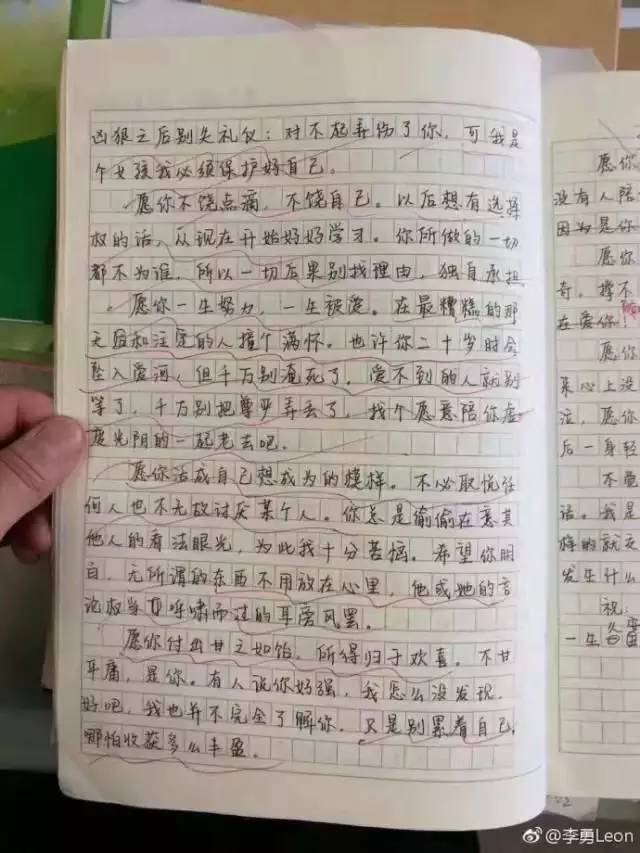 凶狠之后别失礼仪：对不起弄伤了你，可我是
个女孩我必须保护好自己。
愿你不饶点痛，不饶自己。以后想有选择
权的话，从现在开始好好学习。你所做的一切
都不为谁，所以一切后果别找理由，独自承担
愿你一生努力，一生被爱。在最糟糕的那
天留和注定的人撞个满怀。也许你二十岁时会
坠入爱河，但千万别淹死了，爱不到的人就别
等了，千万别把尊严弄丢了，找个愿意陪你虚
度光阴的一起老去吧。
愿你活成自己想成为的模样。不必取悦任
何人也不无故讨厌某个人。你总是偷偷在意其
他人的看法眼光，为此我十分苦恼。希望你明
白，无所谓的东西不用放在心里，他或她的言
论权当耳呼啸而过的耳旁风罢。
愿你付出甘之如饴，所得归于欢喜。不甘
平庸，是你。有人说你好强，我怎么没发现，
好吧，我也并不完全了解你，只是别累着自己，
哪怕收获多么丰盈。
愿你
没有人陪
因为是你
愿你
奇，撑不
在爱你！
愿你
来心上没
泣，愿你
后一身轻
不
话。我是
様的就交
发生什么
祝：
一生
@李勇Leon